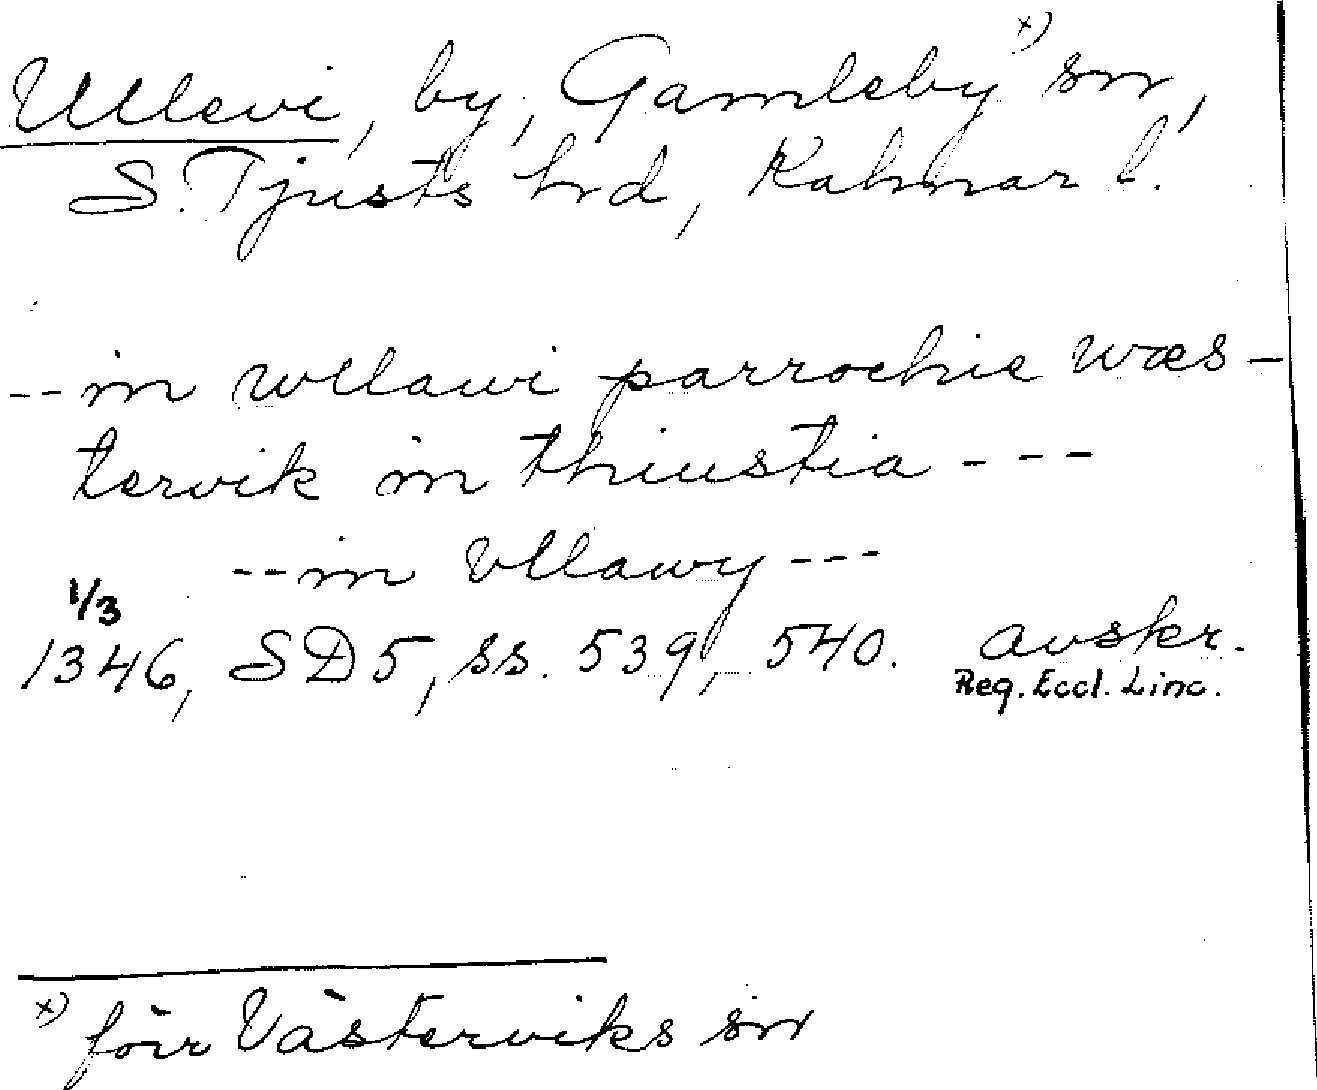 Ullevi, by, Gamleby x) sn,
S. Tjusts hrd, Kalmar l.
-- in wllawi parrochie wæs-
tervik in thiustia ---
-- in Vllawy ---
1/3
1346, SD 5, ss. 539, 540. avskr.
Reg. Eccl. Linc.
x) förr Västerviks sn